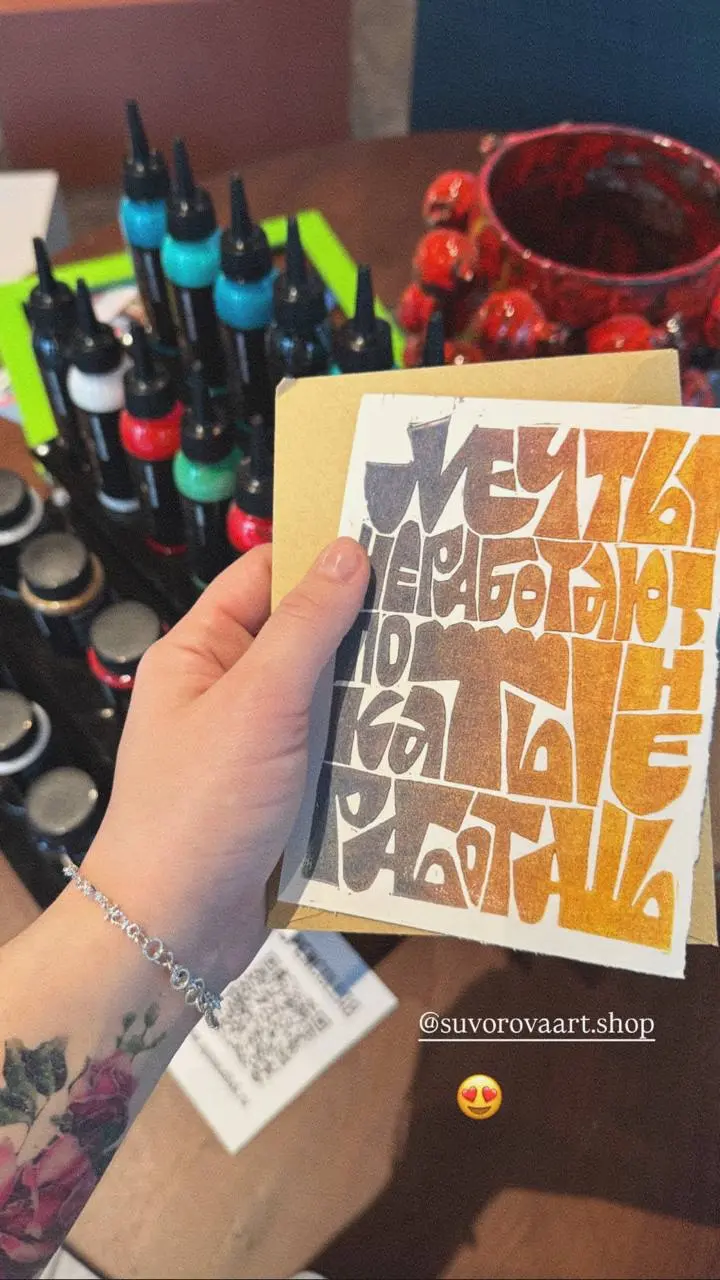 МЕЧТЫ
НЕ РАБОТАЮТ,
ПОКА ТЫ НЕ
РАБОТАЕШЬ
@suvorovaart.shop